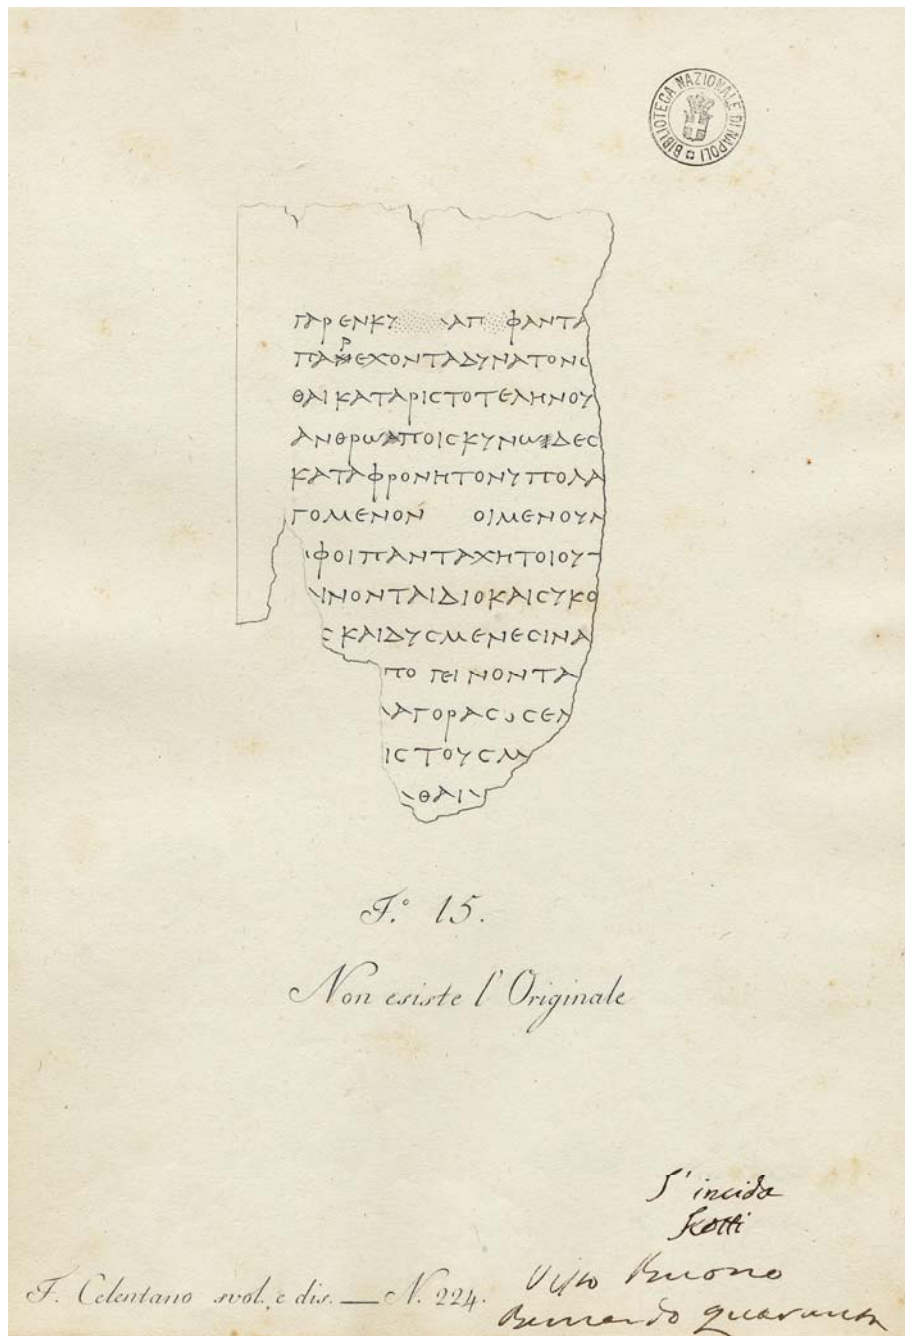 BIBLIOTECA NAZIONALE DI NAPOLI
ΓΑΡ ΕΝΚΥ ΑΠ ΦΑΝΤΑ
ΠΑΡΕΧΟΝΤΑΔΥΝΑΤΟΝϹ
ΘΑΙΚΑΤΑΡΙϹΤΟΤΕΛΗΝΟΥ
ΑΝΘΡΩΠΟΙϹΚΥΝΩΔΕϹ
ΚΑΤΑΦΡΟΝΗΤΟΝΥΠΟΛΑ
ΓΟΜΕΝΟΝ ΟΙΜΕΝΟΥΝ
ΦΟΙΠΑΝΤΑΧΗΤΟΙΟΥΤ
ΙΝΟΝΤΑΙΔΙΟΚΑΙϹΥΚΟ
Ϲ ΚΑΙΔΥϹΜΕΝΕϹΙΝΑ
ΠΟ ΓΕΙΝΟΝΤΑ
ΑΓΟΡΑϹ ϹΕΝ
ΙϹΤΟΥϹΜ
ΘΑΙ
F.° 15.
Non esiste l'Originale
S'incida
Scotti
Visto Buono
Bernardo Quaranta
F. Celentano svol. e dis. — N. 224.